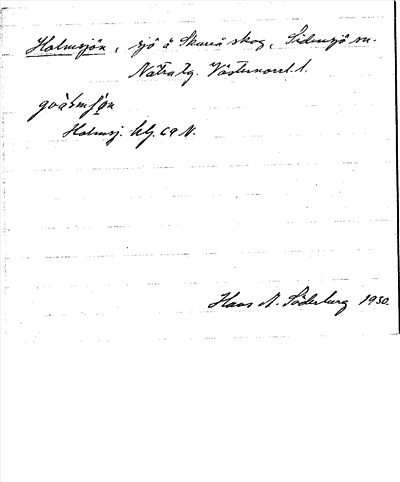 Holmsjön, sjö å Skureå skog, Sidensjö sn.
Nätra tg. Västernorrl. l.
Holmsj. blj. 69 N.
Hans A. Söderberg 1930.